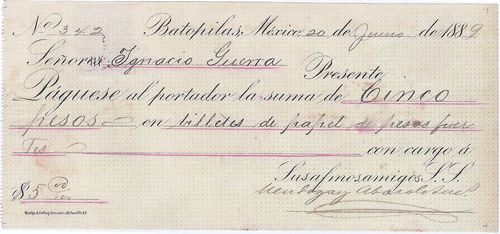 No 342 Batopilas, México, 20 de Junio de 1889
Señor Ignacio Guerra
Presente
Páguese al portador la suma de Cinco
pesos en billetes de papel de pesos fuer
tes con cargo á
Sus afmos amigos S.S.
$5 00/100